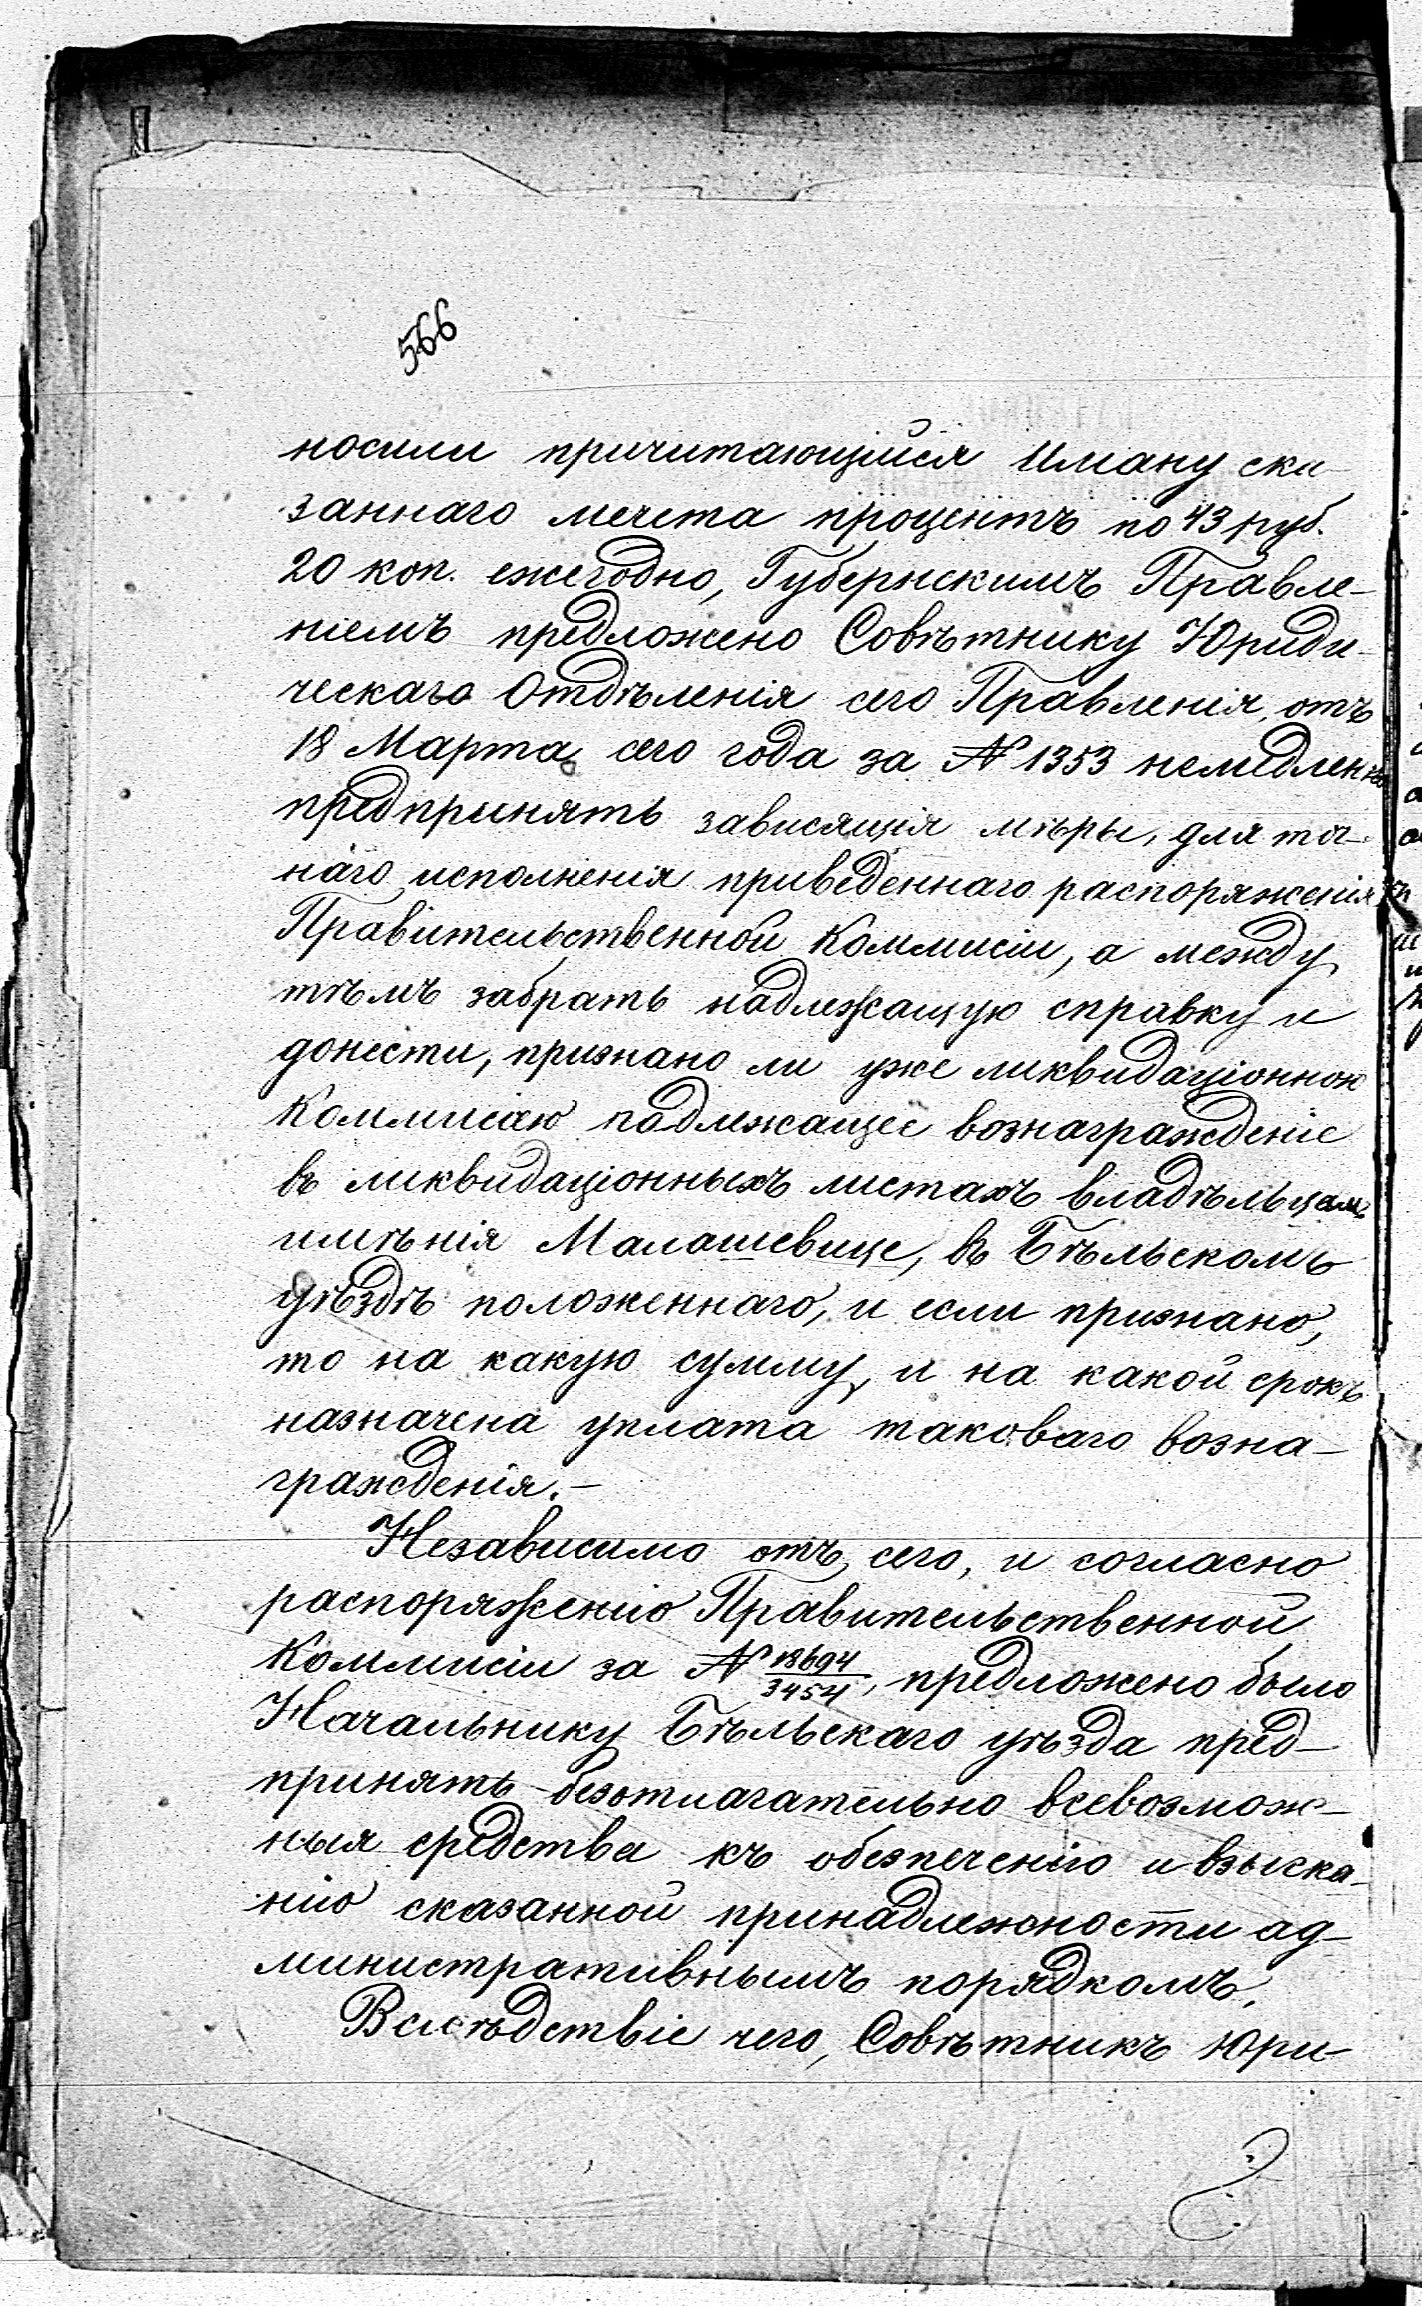 566
носили причитающійся Иману ска-
заннаго мечета процентъ по 43 руб.
20 коп. ежегодно, Губернскимъ Правле-
ніемъ предложено Совѣтнику Юриди-
ческаго Отдѣленія сего Правленія, отъ
18 Марта сего года за № 1353 немедленно
предпринять зависящія мѣры, для точ-
наго исполненія приведеннаго распоряженія
Правительственной Коммисіи, а между
тѣмъ забрать надлежащую справку и
донести, признано ли уже ликвидаціонною
Коммисіею надлежащее вознагражденіе
въ ликвидаціонныхъ листахъ владѣльцамъ
имѣнія Малашевице, въ Бѣльскомъ
уѣздѣ положеннаго, и если признано,
то на какую сумму, и на какой срокъ
назначена уплата таковаго возна-
гражденія.-
Независимо отъ сего, и согласно
распоряженію Правительственной
Коммисіи за № 18694/3454, предложено было
Начальнику Бѣльскаго уѣзда пред-
принять безотлагательно всевозмож-
ныя средства къ обезпеченію и взыска-
нію сказанной принадлежности ад-
министративнымъ порядкомъ.
Вслѣдствіе чего, Совѣтникъ Юри-